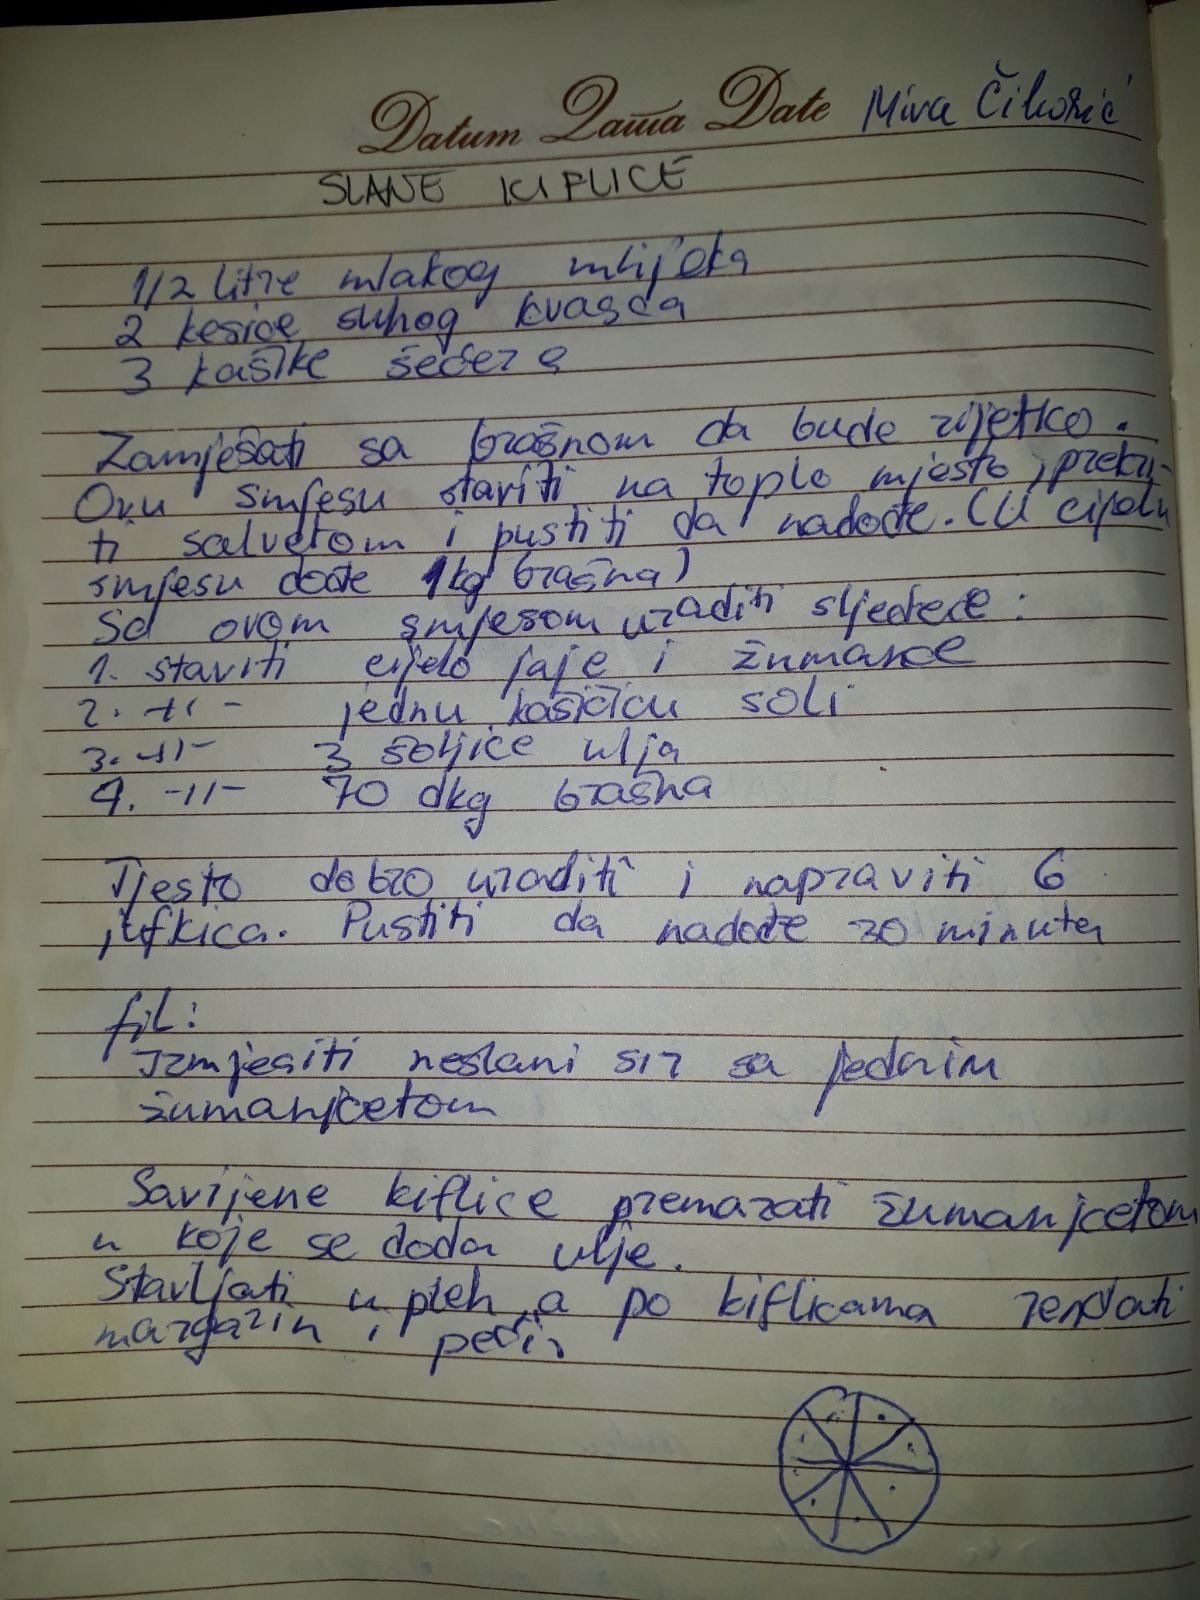 Datum Датум Date Mira Čikorić
SLANE KIFLICE
1/2 litre mlakog mlijeka
2 kesice suhog kvasca
3 kašike šećera
Zamješati sa brašnom da bude rijetko.
Ovu smjesu staviti na toplo mjesto, prekri-
ti salvetom i pustiti da nadođe. (U cijelu
smjesu dođe 1kg brašna)
Sa ovom smjesom uraditi sljedeće:
1. staviti cijelo jaje i žumance
2. -II- jednu kašičicu soli
3. -II- 3 šoljice ulja
4. -II- 70 dkg brašna
Tjesto dobro uraditi i napraviti 6
jufkica. Pustiti da nadođe 30 minuta
fil:
Izmjesiti neslani sir sa jednim
žumanjcetom
Savijene kiflice premazati žumanjcetom
u koje se doda ulje.
Stavljati u pleh, a po kiflicama rendati
margarin i peći